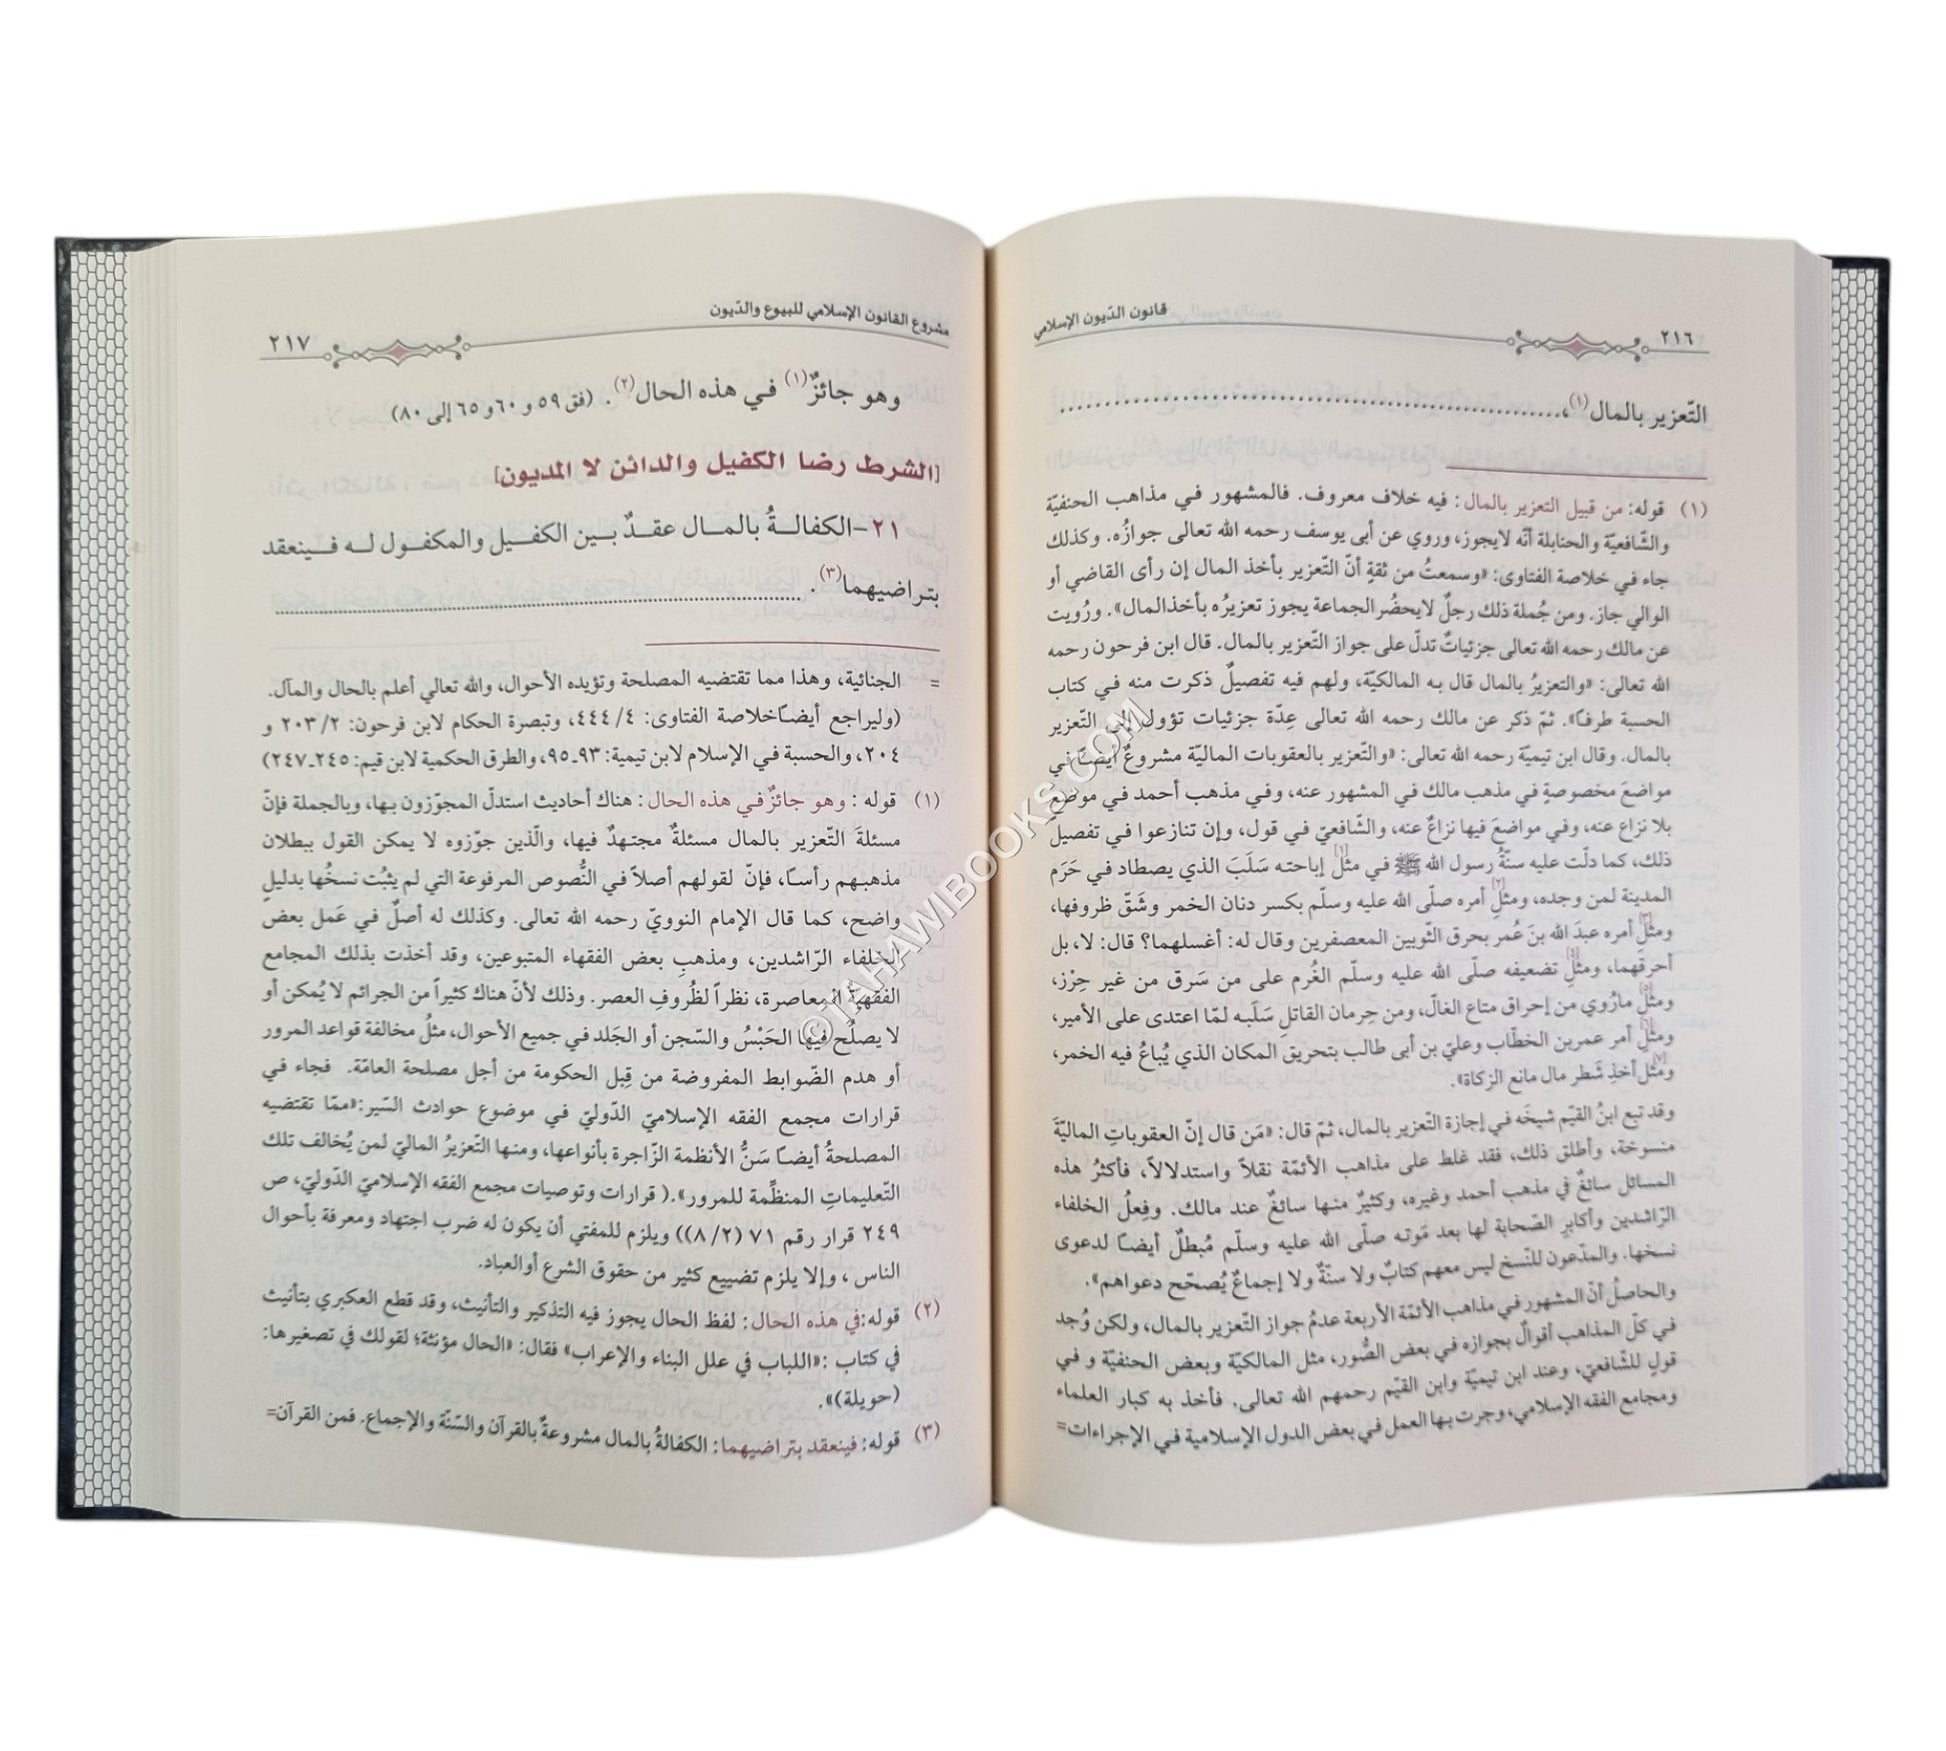 قانون الدّيون الإسلامي
٢١٦
التّعزير بالمال(١)،......................................................
(١) قوله: من قبيل التعزير بالمال: فيه خلاف معروف. فالمشهور في مذاهب الحنفيّة
والشّافعيّة والحنابلة أنّه لايجوز، وروي عن أبى يوسف رحمه الله تعالى جوازُه. وكذلك
جاء في خلاصة الفتاوى: «وسمعتُ من ثقةٍ أنّ التّعزير بأخذ المال إن رأى القاضي أو
الوالي جاز. ومن جُملة ذلك رجلٌ لايحضُر الجماعة يجوز تعزيرُه بأخذ المال». ورُويت
عن مالك رحمه الله تعالى جزئياتٌ تدلّ على جواز التّعزير بالمال. قال ابن فرحون رحمه
الله تعالى: «والتعزيرُ بالمال قال به المالكيّة، ولهم فيه تفصيلٌ ذكرت منه في كتاب
الحسبة طرفاً». ثمّ ذكر عن مالك رحمه الله تعالى عِدّة جزئيات تؤول إلى التّعزير
بالمال. وقال ابن تيميّة رحمه الله تعالى: «والتّعزير بالعقوبات الماليّة مشروعٌ أيضاً في
مواضعَ مخصوصةٍ في مذهب مالك في المشهور عنه، وفي مذهب أحمد في موضع
بلا نزاع عنه، وفي مواضعَ فيها نزاعٌ عنه، والشّافعيّ في قول، وإن تنازعوا في تفصيل
ذلك، كما دلّت عليه سنةُ رسول الله ﷺ في مثل[١] إباحته سَلَبَ الذي يصطاد في حَرَم
المدينة لمن وجده، ومثلِ[٢] أمره صلّى الله عليه وسلّم بكسر دنان الخمر وشَقّ ظروفها،
ومثلِ[٣] أمره عبدَ الله بنَ عُمر بحرق الثّوبين المعصفرين وقال له: أغسلهما؟ قال: لا، بل
أحرقهما، ومثلِ[٤] تضعيفه صلّى الله عليه وسلّم الغُرم على من سَرق من غير حِرْز،
ومثلِ[٥] مارُوي من إحراق متاع الغالّ، ومن حِرمان القاتلِ سَلَبه لمّا اعتدى على الأمير،
ومثلِ[٦] أمر عمربن الخطّاب وعليّ بن أبى طالب بتحريق المكان الذي يُباعُ فيه الخمر،
ومثل[٧] أخذِ شَطر مال مانع الزكاة».
وقد تبع ابنُ القيّم شيخَه في إجازة التّعزير بالمال، ثمّ قال: «مَن قال إنّ العقوباتِ الماليّةَ
منسوخة، وأطلق ذلك، فقد غلط على مذاهب الأئمّة نقلاً واستدلالاً، فأكثرُ هذه
المسائل سائغٌ في مذهب أحمد وغيره، وكثيرٌ منها سائغٌ عند مالك. وفِعلُ الخلفاء
الرّاشدين وأكابرِ الصّحابة لها بعد مَوته صلّى الله عليه وسلّم مُبطلٌ أيضاً لدعوى
نسخها. والمدّعون للنّسخ ليس معهم كتابٌ ولا سنّةٌ ولا إجماعٌ يُصحّح دعواهم».
والحاصلُ أنّ المشهور في مذاهب الأئمّة الأربعة عدمُ جواز التّعزير بالمال، ولكن وُجد
في كلّ المذاهب أقوالٌ بجوازه في بعض الصُّور، مثل المالكيّة وبعض الحنفيّة و في
قولٍ للشّافعيّ، وعند ابن تيميّة وابن القيّم رحمهم الله تعالى. فأخذ به كبار العلماء
ومجامع الفقه الإسلامي، وجرت بها العمل في بعض الدول الإسلامية في الإجراءات=
مشروع القانون الإسلامي للبيوع والدّيون
٢١٧
وهو جائزٌ(١) في هذه الحال(٢). (فق ٥٩ و ٦٠ و ٦٥ إلى ٨٠)
[الشرط رضا الكفيل والدائن لا المديون]
٢١-الكفالةُ بالمال عقدٌ بين الكفيل والمكفول له فينعقد
بتراضيهما(٣). ......................................................
= الجنائية، وهذا مما تقتضيه المصلحة وتؤيده الأحوال، والله تعالي أعلم بالحال والمآل.
(وليراجع أيضاًخلاصة الفتاوى: ٤/ ٤٤٤، وتبصرة الحكام لابن فرحون: ٢/ ٢٠٣ و
٢٠٤، والحسبة في الإسلام لابن تيمية: ٩٣ـ٩٥، والطرق الحكمية لابن قيم: ٢٤٥ـ٢٤٧)
(١) قوله : وهو جائزٌ في هذه الحال: هناك أحاديث استدلّ المجوّزون بها، وبالجملة فإنّ
مسئلةَ التّعزير بالمال مسئلةٌ مجتهدٌ فيها، والّذين جوّزوه لا يمكن القول ببطلان
مذهبهم رأساً، فإنّ لقولهم أصلاً في النُّصوص المرفوعة التي لم يثبُت نسخُها بدليلٍ
واضح، كما قال الإمام النوويّ رحمه الله تعالى. وكذلك له أصلٌ في عَمل بعض
الخلفاء الرّاشدين، ومذهبِ بعض الفقهاء المتبوعين، وقد أخذت بذلك المجامع
الفقهيّة المعاصرة، نظراً لظُروفِ العصر. وذلك لأنّ هناك كثيراً من الجرائم لا يُمكن أو
لا يصلُح فيها الحَبْسُ والسّجن أو الجَلد في جميع الأحوال، مثلُ مخالفة قواعد المرور
أو هدم الضّوابط المفروضة من قِبل الحكومة من أجل مصلحة العامّة. فجاء في
قرارات مجمع الفقه الإسلاميّ الدّوليّ في موضوع حوادث السّير:«ممّا تقتضيه
المصلحةُ أيضاً سَنُّ الأنظمة الزّاجرة بأنواعها، ومنها التّعزيرُ الماليّ لمن يُخالف تلك
التّعليماتِ المنظِّمة للمرور».( قرارات وتوصيات مجمع الفقه الإسلاميّ الدّوليّ، ص
٢٤٩ قرار رقم ٧١ (٢/ ٨)) ويلزم للمفتي أن يكون له ضرب اجتهاد ومعرفة بأحوال
الناس ، وإلا يلزم تضييع كثير من حقوق الشرع أوالعباد.
(٢) قوله:في هذه الحال: لفظ الحال يجوز فيه التذكير والتأنيث، وقد قطع العكبري بتأنيث
في كتاب :«اللباب في علل البناء والإعراب» فقال: «الحال مؤنثة؛ لقولك في تصغيرها:
(حويلة)».
(٣) قوله: فينعقد بتراضيهما: الكفالةُ بالمال مشروعةٌ بالقرآن والسّنّة والإجماع. فمن القرآن=
©TAHAWIBOOKS.COM